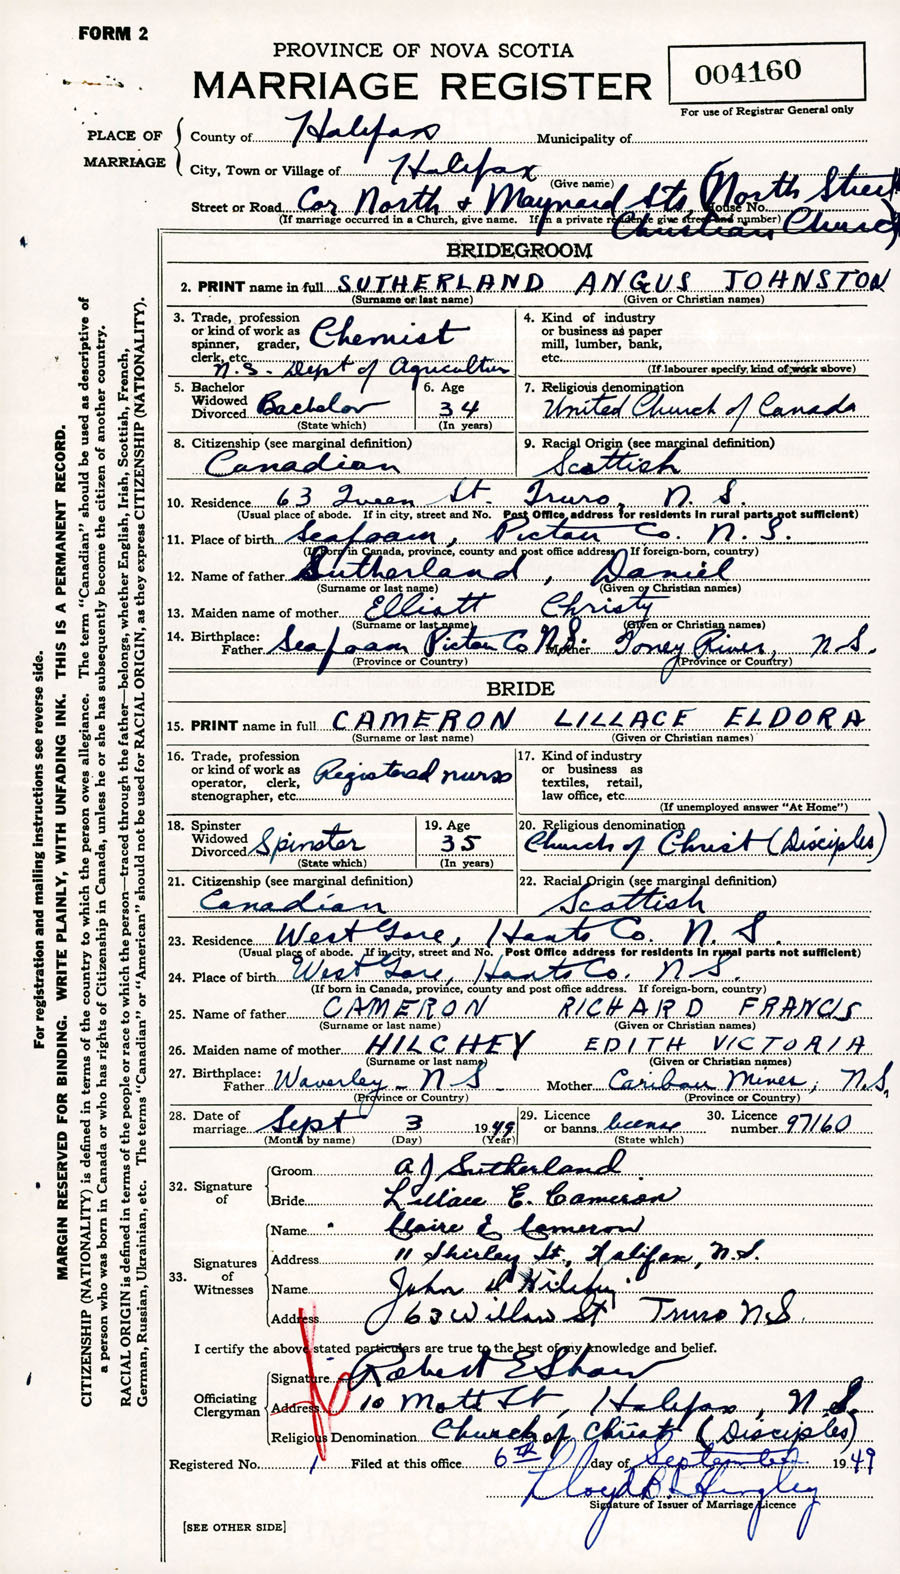 FORM 2
PROVINCE OF NOVA SCOTIA
MARRIAGE REGISTER
004160
For use of Registrar General only
PLACE OF MARRIAGE
County of Halifax Municipality of
City, Town or Village of Halifax
(Give name)
Street or Road Cor North & Maynard Sts, (North Street House No.
(If marriage occurred in a Church, give name. If in a private residence give street and number) Christian Church)
BRIDEGROOM
2. PRINT name in full SUTHERLAND ANGUS JOHNSTON
(Surname or last name) (Given or Christian names)
3. Trade, profession or kind of work as spinner, grader, clerk, etc. Chemist
N.S. Dept of Agriculture
4. Kind of industry or business as paper mill, lumber, bank, etc.
(If labourer specify, kind of work above)
5. Bachelor Widowed Divorced Bachelor
(State which)
6. Age 34
(In years)
7. Religious denomination
United Church of Canada
8. Citizenship (see marginal definition)
Canadian
9. Racial Origin (see marginal definition)
Scottish
10. Residence 63 Queen St. Truro, N. S.
(Usual place of abode. If in city, street and No. Post Office address for residents in rural parts not sufficient)
11. Place of birth Seafoam, Pictou Co. N. S.
(If born in Canada, province, county and post office address. If foreign-born, country)
12. Name of father Sutherland, Daniel
(Surname or last name) (Given or Christian names)
13. Maiden name of mother Elliott Christy
(Surname or last name) (Given or Christian names)
14. Birthplace:
Father Seafoam Pictou Co N.S. Mother Toney River, N.S.
(Province or Country) (Province or Country)
BRIDE
15. PRINT name in full CAMERON LILLACE ELDORA
(Surname or last name) (Given or Christian names)
16. Trade, profession or kind of work as operator, clerk, stenographer, etc. Registered nurse
17. Kind of industry or business as textiles, retail, law office, etc.
(If unemployed answer "At Home")
18. Spinster Widowed Divorced Spinster
(State which)
19. Age 35
(In years)
20. Religious denomination
Church of Christ (Disciples)
21. Citizenship (see marginal definition)
Canadian
22. Racial Origin (see marginal definition)
Scottish
23. Residence West Gore, Hants Co. N. S.
(Usual place of abode. If in city, street and No. Post Office address for residents in rural parts not sufficient)
24. Place of birth West Gore, Hants Co. N S.
(If born in Canada, province, county and post office address. If foreign-born, country)
25. Name of father CAMERON RICHARD FRANCIS
(Surname or last name) (Given or Christian names)
26. Maiden name of mother HILCHEY EDITH VICTORIA
(Surname or last name) (Given or Christian names)
27. Birthplace:
Father Waverley - N S Mother Caribou Mines, N.S.
(Province or Country) (Province or Country)
28. Date of marriage Sept 3 1949
(Month by name) (Day) (Year)
29. Licence or banns license
(State which)
30. Licence number 97160
32. Signature of
Groom A J Sutherland
Bride Lillace E. Cameron
33. Signatures of Witnesses
Name Claire E Cameron
Address 11 Shirley St., Halifax, N.S.
Name John D
Address 63 Willow St Truro N.S.
I certify the above stated particulars are true to the best of my knowledge and belief.
Officiating Clergyman
Signature Robert E Shaw
Address 10 Mott St, Halifax, N.S.
Religious Denomination Church of Christ (Disciples)
Registered No. 1 Filed at this office 6th day of September 1949
Signature of Issuer of Marriage Licence
[SEE OTHER SIDE]
For registration and mailing instructions see reverse side.
MARGIN RESERVED FOR BINDING. WRITE PLAINLY, WITH UNFADING INK. THIS IS A PERMANENT RECORD.
CITIZENSHIP (NATIONALITY) is defined in terms of the country to which the person owes allegiance. The term "Canadian" should be used as descriptive of
a person who was born in Canada or who has rights of Citizenship in Canada, unless he or she has subsequently become the citizen of another country.
RACIAL ORIGIN is defined in terms of the people or race to which the person—traced through the father—belongs, whether English, Irish, Scottish, French,
German, Russian, Ukrainian, etc. The terms "Canadian" or "American" should not be used for RACIAL ORIGIN, as they express CITIZENSHIP (NATIONALITY).